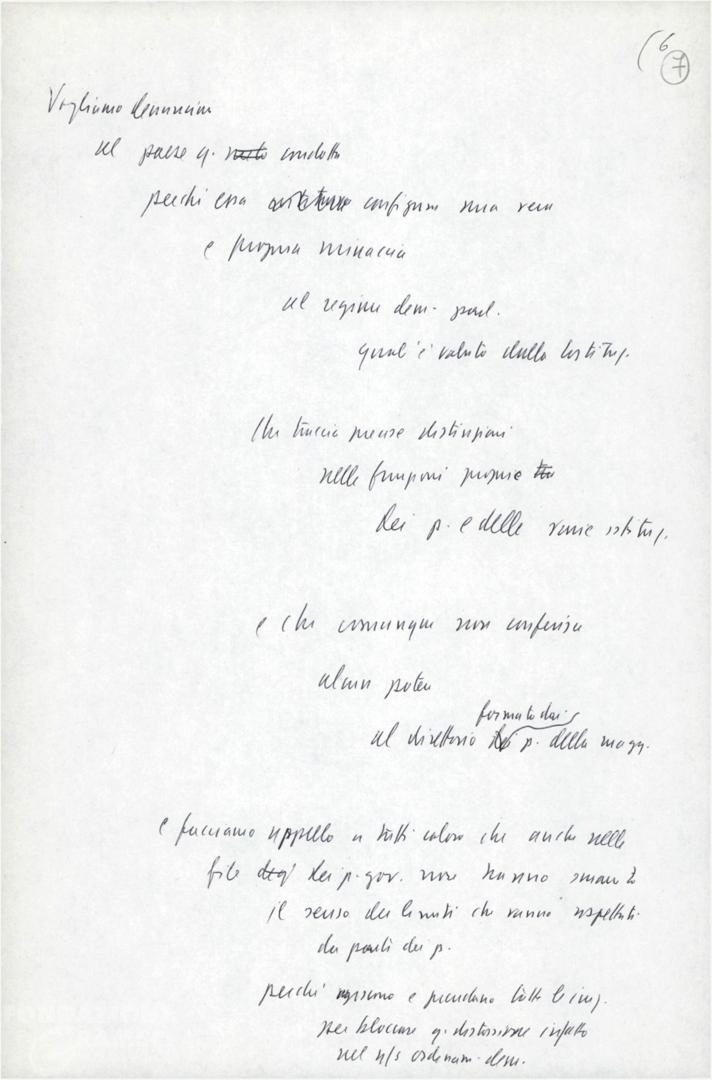 (6
7
Vogliamo denunciare
al paese q. condotta
perché essa configura una vera
e propria minaccia
al regime dem. parl.
qual'è voluto dalla Costituz.
Che traccia precise distinzioni
nelle funzioni proprie
dei p. e delle varie istituz.
e che comunque non conferisce
alcun potere
formato dai
al direttorio p. della magg.
e facciamo appello a tutti coloro che anche nelle
file dei p. gov. non hanno smarrito
il senso dei limiti che vanno rispettati
da parte dei p.
perché agiscano e prendano tutte le iniz.
per bloccare q. distorsione
nel n/s ordinam. dem.